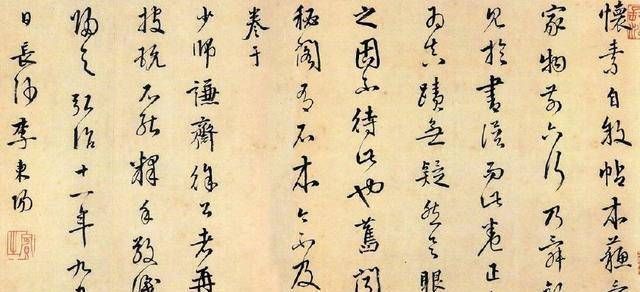 懷素自敘帖本蘇
家物前六行乃舜
見於書譜而此卷正
為真蹟無疑然具眼
之固不待此也舊聞
秘閣有石本今不及
卷于
少師謙齋徐公者再
披玩不能釋手敬識
歸之弘治十一年九
日長沙李東陽